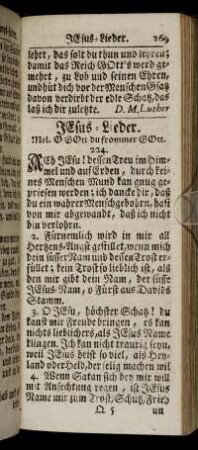 JEsus-Lieder. 269
lehrt, das solt du thun und lehren;
damit das Reich GOtt's werd ge-
mehrt, zu Lob und seinen Ehren,
und hüt dich vor der Menschen Gsatz
davon verdirbt der edle Schatz, das
laß ich dir zuletzte. D. M. Luther
JEsus-Lieder.
Mel. O GOtt du frommer GOtt.
224.
ACh JEsu! dessen Treu im Him-
mel und auf Erden, durch kei-
nes Menschen Mund kan gnug ge-
priesen werden; ich dancke dir, daß
du ein wahrer Mensch gebohrn, hast
von mir abgewandt, daß ich nicht
bin verlohrn.
2. Fürnemlich wird in mir all
Hertzens-Angst gestillet, wenn mich
dein süsser Nam und dessen Trost er-
füllet; kein Trost so lieblich ist, als
den mir gibt dein Nam, der süsse
JEsus-Nam, o Fürst aus Davids
Stamm.
3. O JEsu, höchster Schatz! du
kanst mir Freude bringen, es kan
nichts lieblichers, als JEsus Name
klingen. Ich kan nicht traurig seyn,
weil JEsus heist so viel, als Hey-
land oder Held, der selig machen wil
4. Wenn Satan sich bey mir will
mit Anfechtung regen, ist JEsus
Name mir zum Trost, Schutz, Fried
5 un